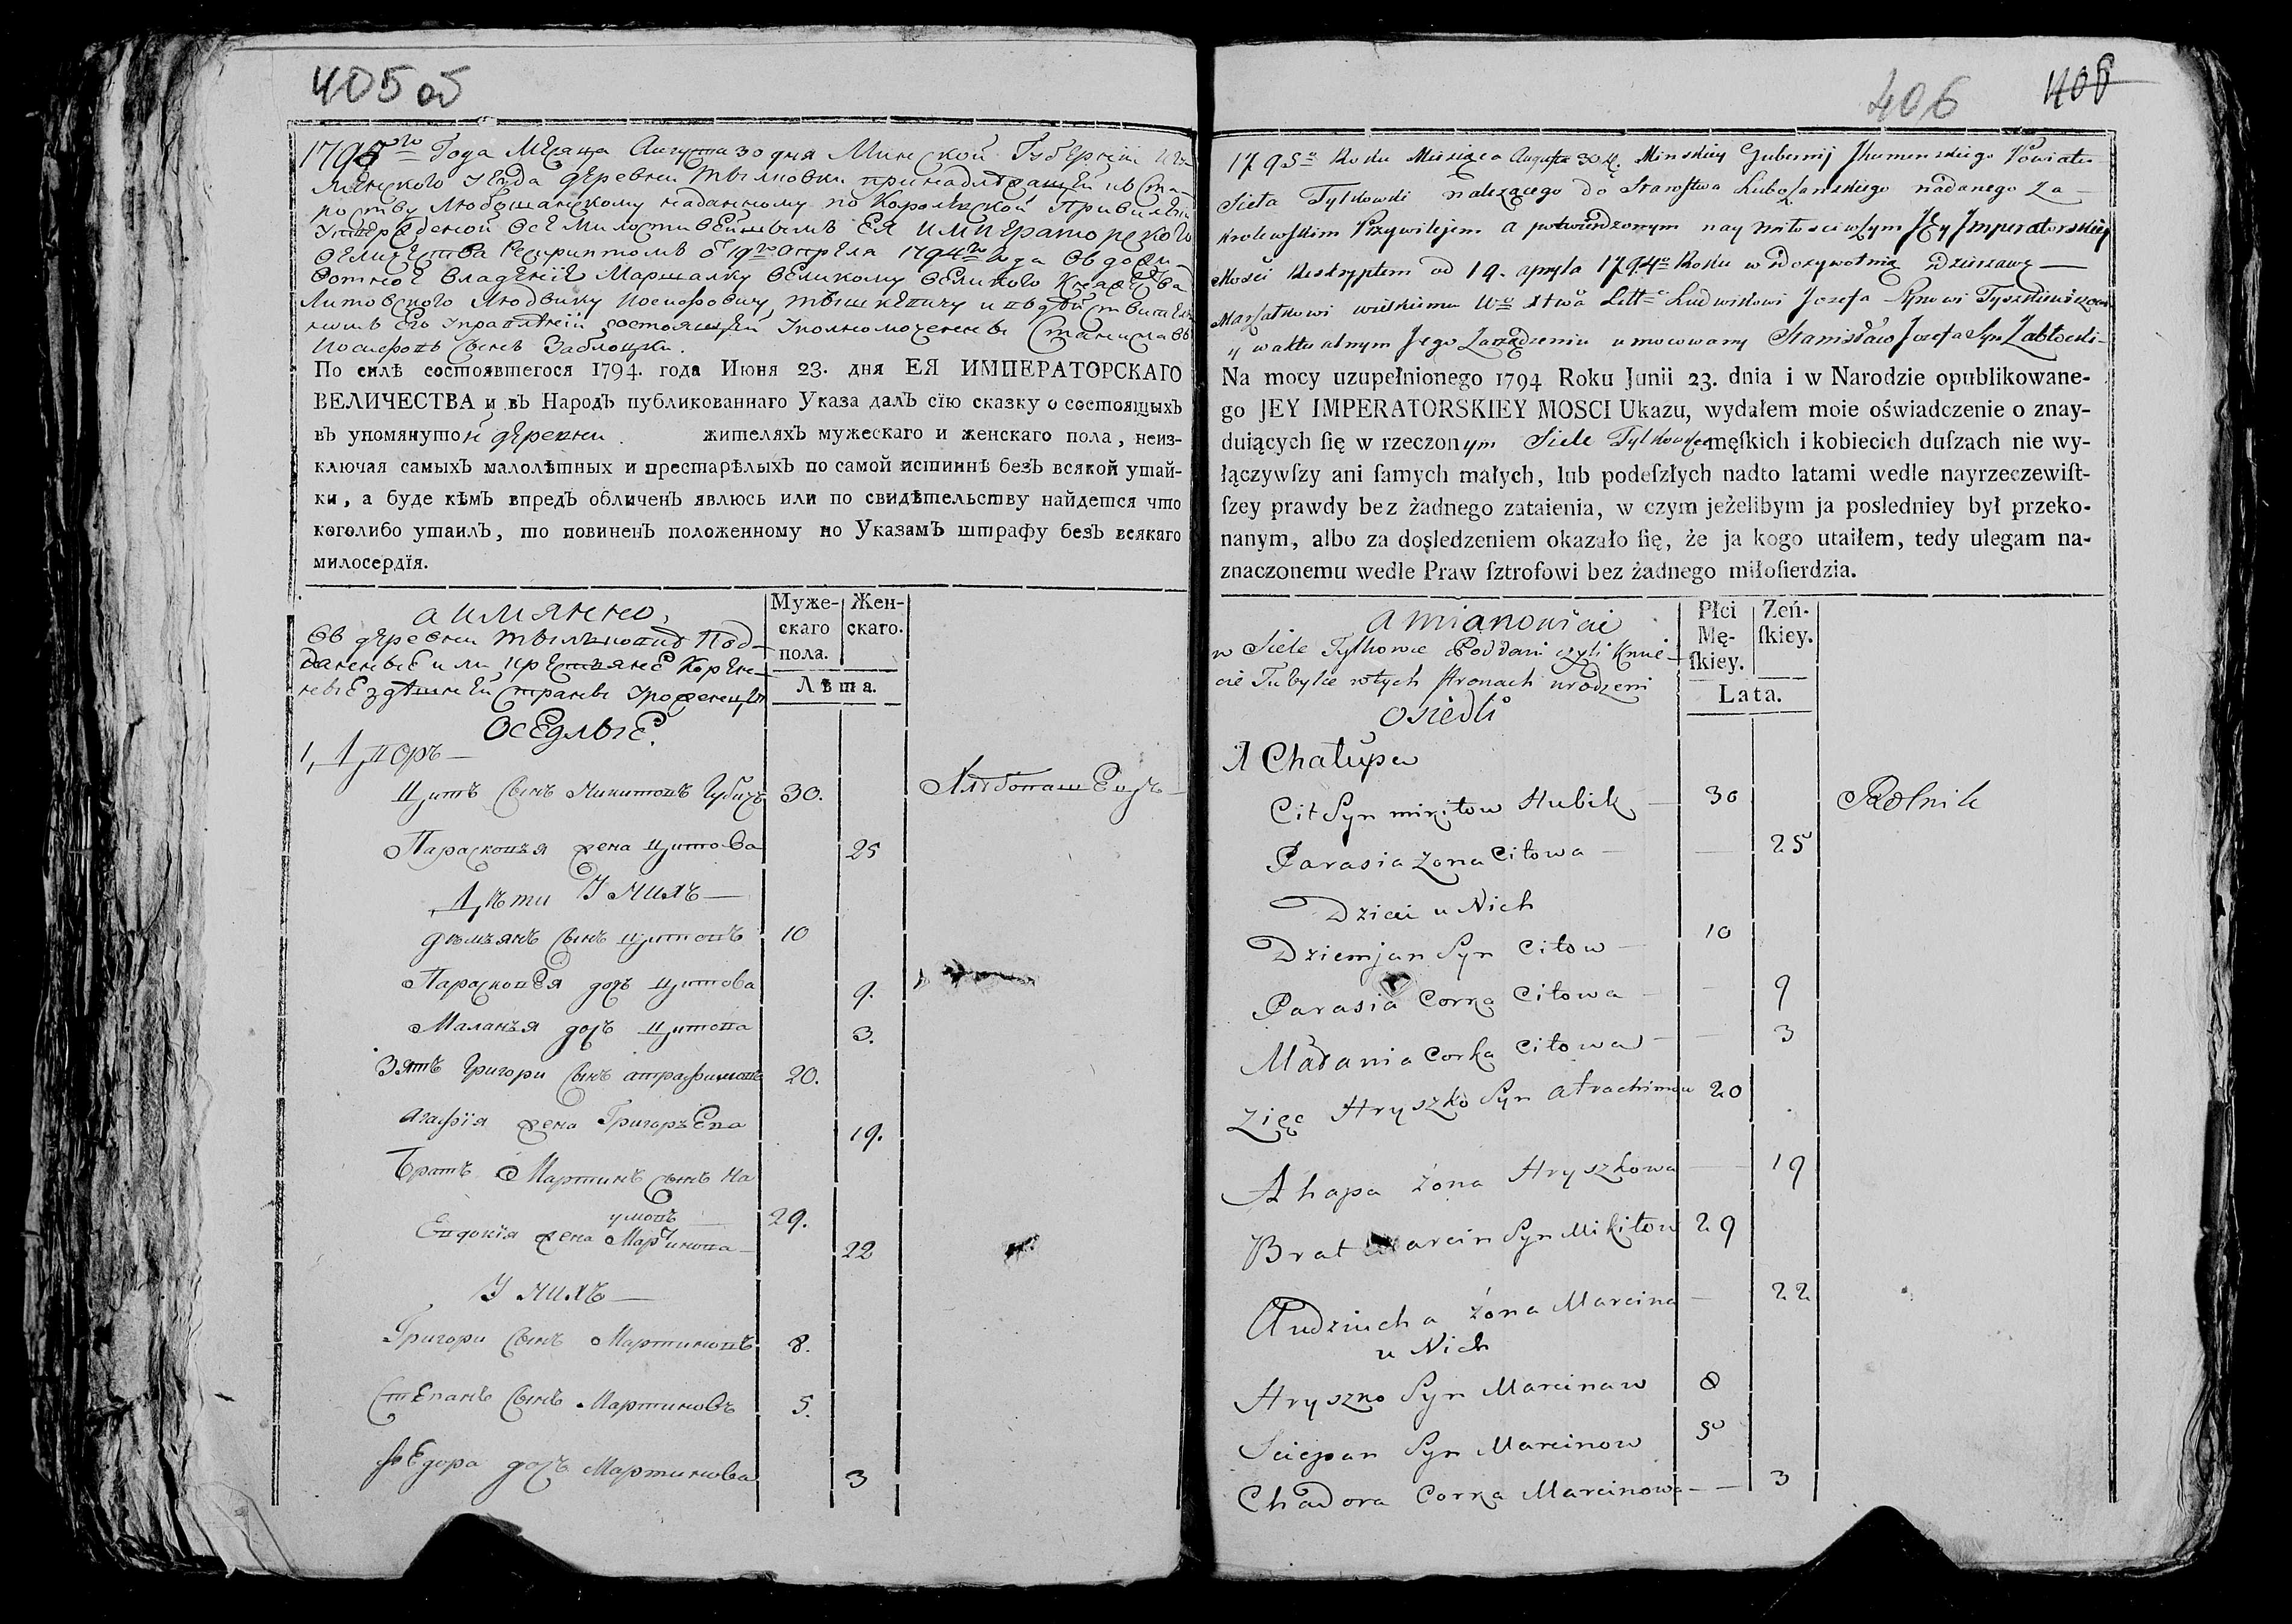 405 об
1795го Года Месяца Августа 30 дня Минской Губернiи Игу-
менского уезда деревни Тылковки принадлежащей къ ста-
роству Любошанскому наданному по Королевской Привилегiи
утвержденной всемилостивейшымъ ЕЯ ИМПЕРАТОРСКОГО
величества Рескриптомъ отъ 19го апреля 1794го года въ дожи-
вотное владенiе Маршалку великому великого Княжества
Литовского Людвику Иосифовичу Тышкевичу и въ действитель-
номъ Его управленiи состоящей уполномоченны Станиславъ
Иосифовъ сынъ Заблоцки.
По силѣ состоявшегося 1794. года Июня 23. дня ЕЯ ИМПЕРАТОРСКАГО
ВЕЛИЧЕСТВА и въ Народъ публикованнаго Указа далъ сїю сказку о состоящыхъ
въ упомянутой деревни. жителяхъ мужескаго и женскаго пола, неиз-
ключая самыхъ малолѣтных и престарѣлыхъ по самой истиннѣ безъ всякой утай-
ки, а буде кѣмъ впредъ обличенъ явлюсь или по свидѣтельству найдется что
коголибо утаилъ, то повиненъ положенному по Указамъ штрафу безъ всякаго
милосердїя.
а имянно,
въ деревни Тылковки Под-
данные или крестьяне корен-
ные здешней страны уроженцы
оседлые.
Муже-
скаго
пола.
Жен-
скаго.
Лѣта.
1, Дворъ
Цитъ сынъ Микитовъ Губичъ 30. Хлебопашецъ
Парасковья жена Цитова 25
Дѣти у нихъ
Демьянъ сынъ Цитовъ 10
Парасковья дочь Цитова 9.
Маланья дочь Цитова 3.
Зять Григори сынъ атрафимовъ 20.
Агафiя жена Григорьева 19.
Братъ Мартинъ сынъ На
умовъ 29.
Евдокiя жена Мартинова 22
У нихъ
Григори сынъ Мартиновъ 8.
Степанъ сынъ Мартиновъ 5.
Федора дочь Мартинова 3
406 406
1795o Roku Miesiąca Augusta 30 d. Minskiey Gubernij Jhumenskiego Powiatu
Sieła Tylkowki należącego do Starostwa Luboszanskiego nadanego za
krolewskim Przywilejem a potwierdzonym naymiłosciwszym JEy Jmperatorskiey
Mosci Reskryptem od 19. apryla 1794o Roku w dożywotnią dzierżawę
Marszałkowi wielkiemu Wo Xtwa Litto Ludwikowi Jozefa Synowi Tyszkiewiczowi
y w aktualnym Jego Zarządzeniu umocowany Stanisław Jozefa Syn Zabłocki
Na mocy uzupełnionego 1794 Roku Junii 23. dnia i w Narodzie opublikowane-
go JEY IMPERATORSKIEY MOSCI Ukazu, wydałem moie oświadczenie o znay-
duiących ſię w rzeczonym Siele Tylkowce męſkich i kobiecich duſzach nie wy-
łączywſzy ani ſamych małych, lub podeſzłych nadto latami wedle nayrzeczewiſt-
ſzey prawdy bez żadnego zataienia, w czym jeżelibym ja posledniey był przeko-
nanym, albo za dosledzeniem okazało ſię, że ja kogo utaiłem, tedy ulegam na-
znaczonemu wedle Praw ſztrofowi bez żadnego miłoſierdzia.
a mianowicie
w Siele Tylkowce Poddani czyli Kmie-
cie Tubylcy w tych Stronach urodzeni
osiedli
Płci
Mę-
ſkiey.
Zeń-
ſkiey.
Lata.
1 Chałupa
Cit Syn mikitow Hubik 30 Rolnik
Parasia żona Citowa 25
Dzieci u Nich
Dziemjan Syn Citow 10
Parasia Corka Citowa 9
Małania Corka Citowa 3
Zięć Hryszko Syn atrachimow 20
Ahapa żona Hryszkowa 19
Brat Marcin Syn Mikitow 29
Audziucha żona Marcina 22
u Nich
Hryszko Syn Marcinow 8
Sciepan Syn Marcinow 5
Chadora Corka Marcinowa 3